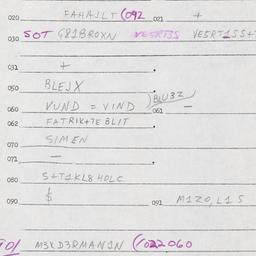 020 FAHAJLT (092 021 +
030 SOT G81BROXN VESRT3S VESRT1SS+
031 +
050 BLEJX
060 VUND = VIND )BLU3Z 061 —
062 FATRIK+TE BLIT
070 SIMEN
071 —
080 S+T1KL8 HOLC
090 $ 091 M1Z0, L1 S
TO/ M3XD3RMAN1N (/022060